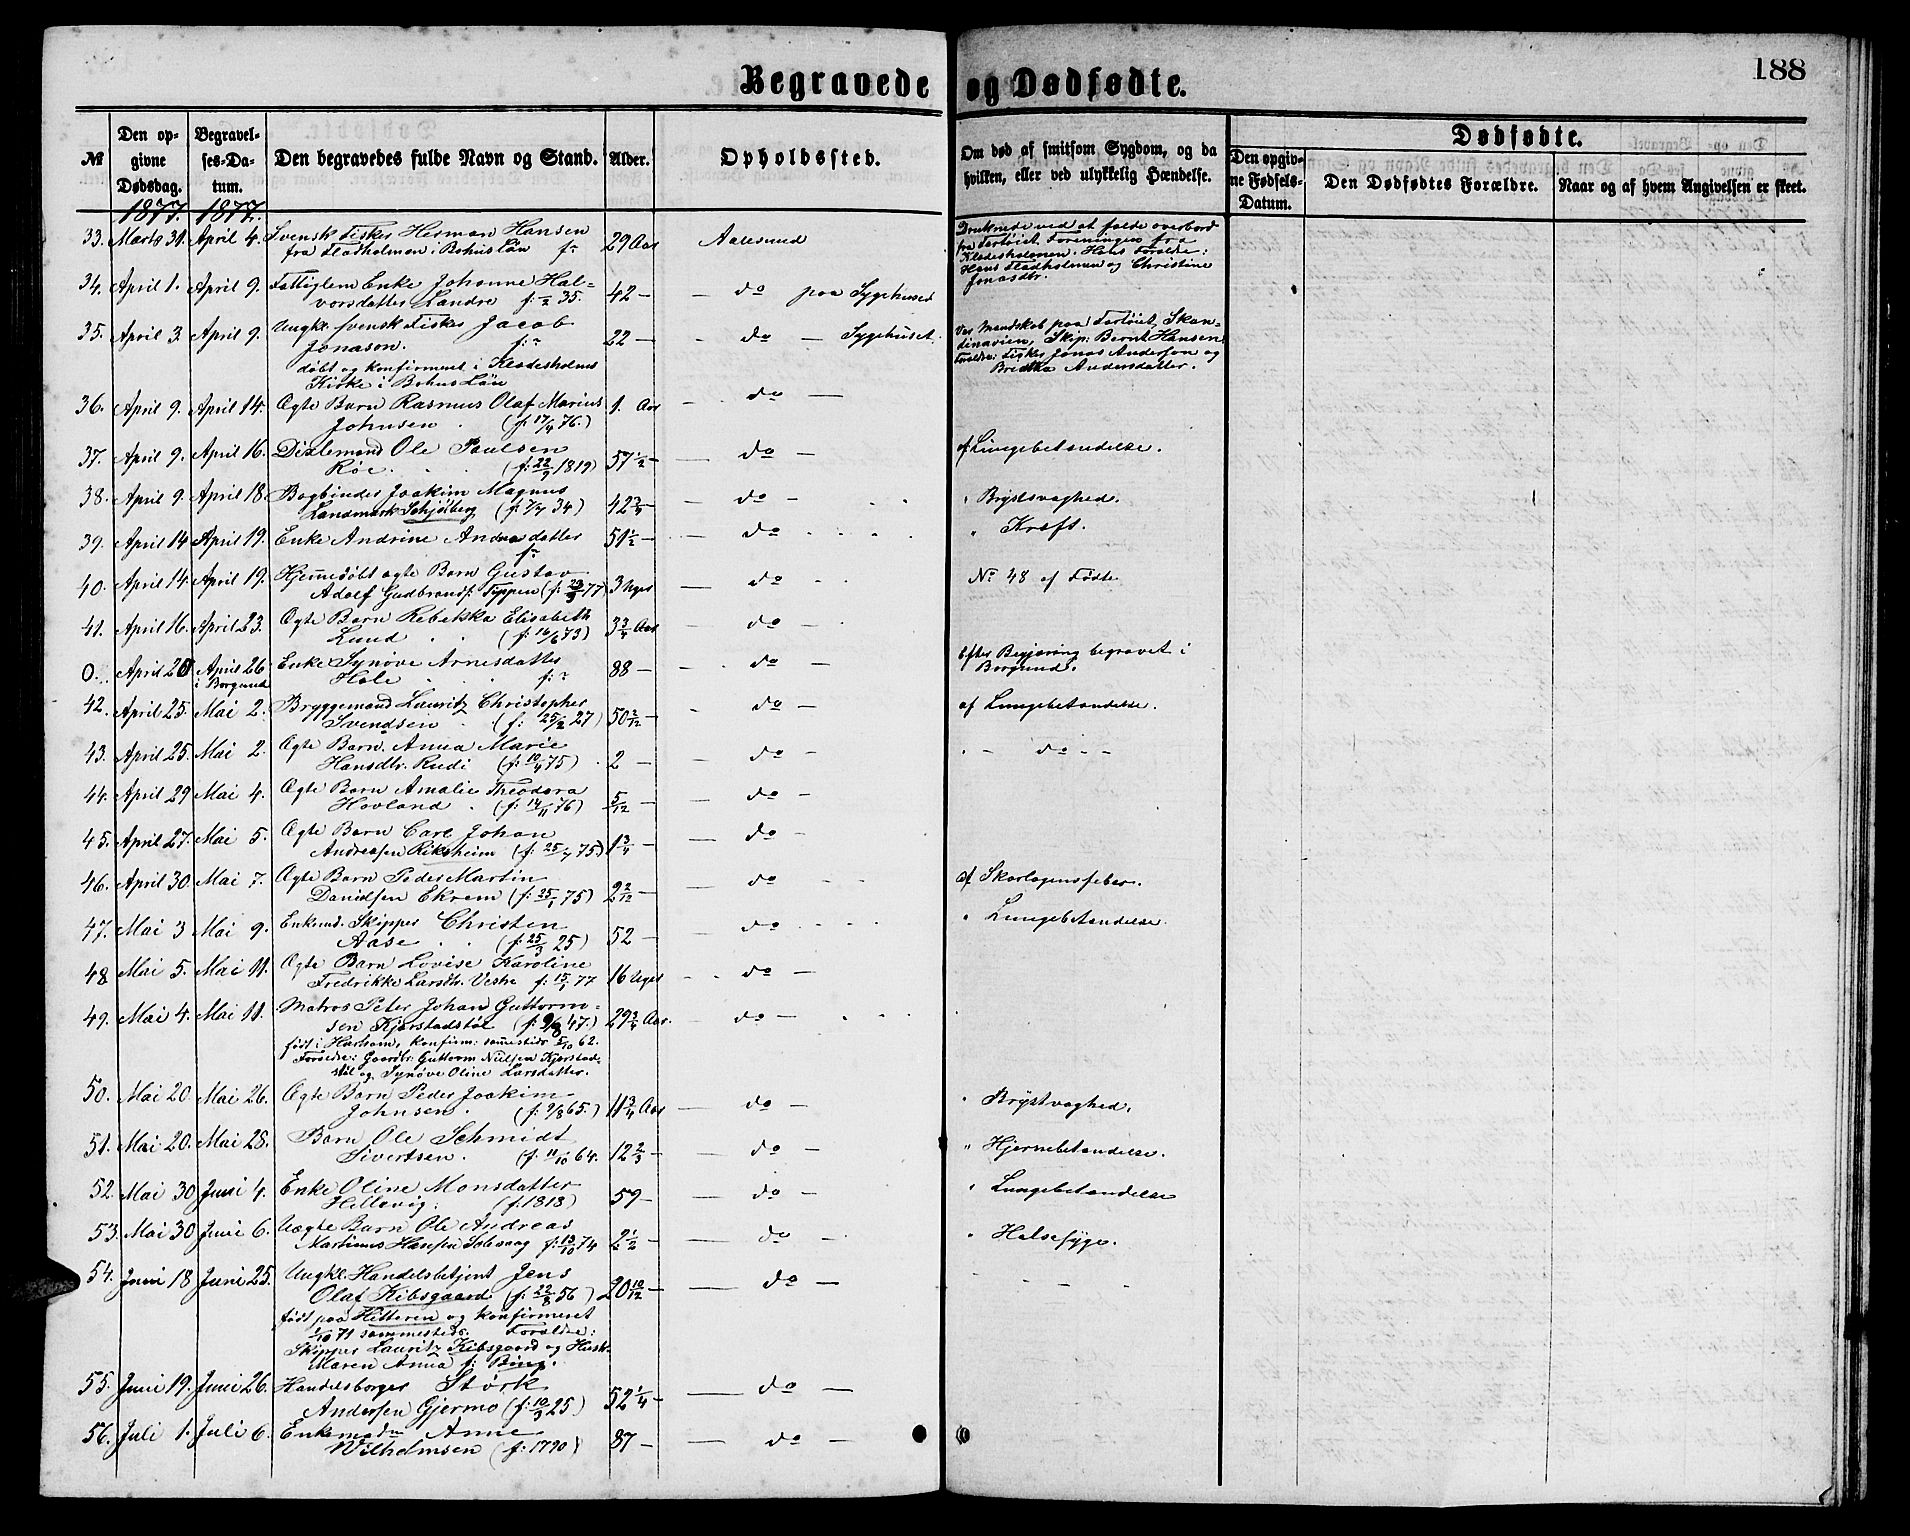 188
Begravede og Dødfødte.
№
Den opgivne Dødsdag.
Begravelses-Datum.
Den begravedes fulde Navn og Stand.
Alder.
Opholdssted.
Om død af smitsom Sygdom, og da hvilken, eller ved ulykkelig Hændelse.
Dødfødte.
Den opgivne Fødsels-Datum.
Den Dødfødtes Forældre.
Naar og af hvem Angivelsen er skeet.
1877. 1877.
33. Marts 31. April 4. Svensk Fisker Herman Hansen 29 Aar Aalesund Druknede ved at falde overbord
fra Flatholmen i Bohus Län f: fra Fartøiet Foreningen fra
Klædesholmen. Hans Forældre:
Hans Fladholmen og Christine
Jonasdtr.
34. April 1. April 9. Fattiglem Enke Johanne Hal-
vorsdatter Landre f: 35. 42 — — do paa Sygehuset
35. April 3. April 9. Ungkl. svensk Fisker Jacob Var Mandskab paa Fartøiet Skan-
Jonason. f: ? 22 — — do — Sygehuset. dinavien, Skip: Bernt Hansen.
døbt og konfirmeret i Klædesholmens Forældre: Fisker Jonas Anderson og
Kirke i Bohus Län Andersdatter.
36. April 9. April 14. Ægte Barn Rasmus Olaf Marius 1. Aar — do —
Johnsen (f: 17/4 76.)
37. April 9. April 16. Ole Paulsen 57 1/2 — — do — af Lungebetændelse.
Røe. (f: 22/9 1819)
38. April 9. April 18. Bogbinder Joakim Magnus — do — " Brystsvaghed.
Landmark Schjølberg (f: 7/7 34) 42 3/4 —
39. April 14 April 19. Enke Andrine Andreasdatter 51 1/2 — — do — " Kræft.
f:
40. April 14. April 19. Hjemmedøbt ægte Barn Gustav
Adolf Gudbrands. Tippen (f: 23/3 77) 3 Uger — do No 48 af Fødte
41. April 16. April 23. Ægte Barn Rebekka Elisabeth 3 3/4 Aar — do —
Lund (f: 16/6 73)
0. April 20 April 26 Enke Synøve Arnesdatter 88 — — do — Efter Begjæring begravet i
i Borgund Hole f: ? Borgund.
42. April 25. Mai 2. Bryggemand Lauritz Christopher 50 2/12 — — do — af Lungebetændelse.
Svendsen (f: 25/2 27)
43. April 25. Mai 2. Ægte Barn Anna Marie
Hansdtr. Rudi (f: 10/4 75) 2 — — do — — do —
44. April 29 Mai 4. Ægte Barn Amalie Theodora
Hovland (f: 14/11 76) 5/12 — — do —
45. April 27. Mai 5. Ægte Barn Carl Johan
Andreasen Riksheim (f: 25/7 75) 1 3/4 — — do —
46. April 30 Mai 7. Ægte Barn Peder Martin
Danielsen Ekrem (f: 25/1 75) 2 2/12 — do — af Skarlagensfeber.
47. Mai 3 Mai 9. Enkemd. Skipper Christen 52 — — do — " Lungebetændelse.
Aase (f: 25/3 25)
48 Mai 5. Mai 11. Ægte Barn Lovise Karoline
Fredrikke Larsdtr. Vestre f: 15/1 77 16 Uger — do —
49. Mai 4. Mai 11. Matros Peter Johan Guttorm-
sen Kjerstadstøl (f: 9/8 47.) 29 3/4 Aar. — do —
født i Harham, konfirm: sammesteds 5/10 62.
Forældre: Gaardbr. Guttorm Nielsen Kjerstad-
støl og Synøve Oline Larsdatter.
50. Mai 20 Mai 26. Ægte Barn Peder Joakim 11 3/4 Aar — do — " Brystsvaghed.
Johnsen (f: 9/8 65.)
51. Mai 20. Mai 28. Barn Ole Schmidt
Sivertsen. (f: 11/10 64. 12 2/3 — — do — " Hjernebetændelse.
52. Mai 30 Juni 4. Enke Oline Monsdatter
Hellevig. (f: 1818) 59 — — do — " Lungebetændelse
53. Mai 30 Juni 6. Uægte Barn Ole Andreas
Martinus Hansen Solevaag f: 13/10 74 2 1/2 — — do — " Halssyge.
54. Juni 18 Juni 25. Ungkl. Handelsbetjent Jens
Olaf Kibsgaard (f: 22/8 56) 20 10/12 — — do —
født paa Hitteren og konfirmeret
1/10 71 sammesteds. Forældre:
Skipper Lauritz Kibsgaard og Hustr.
Maren Anna f: Bing.
55. Juni 19. Juni 26. Handelsborger Størk
Andersen Gjermo (f: 10/3 25) 52 1/4 — — do —
56. Juli 1. Juli 6. Enkemadm Anne 87 — — do —
Wilhelmsen (f: 1790)